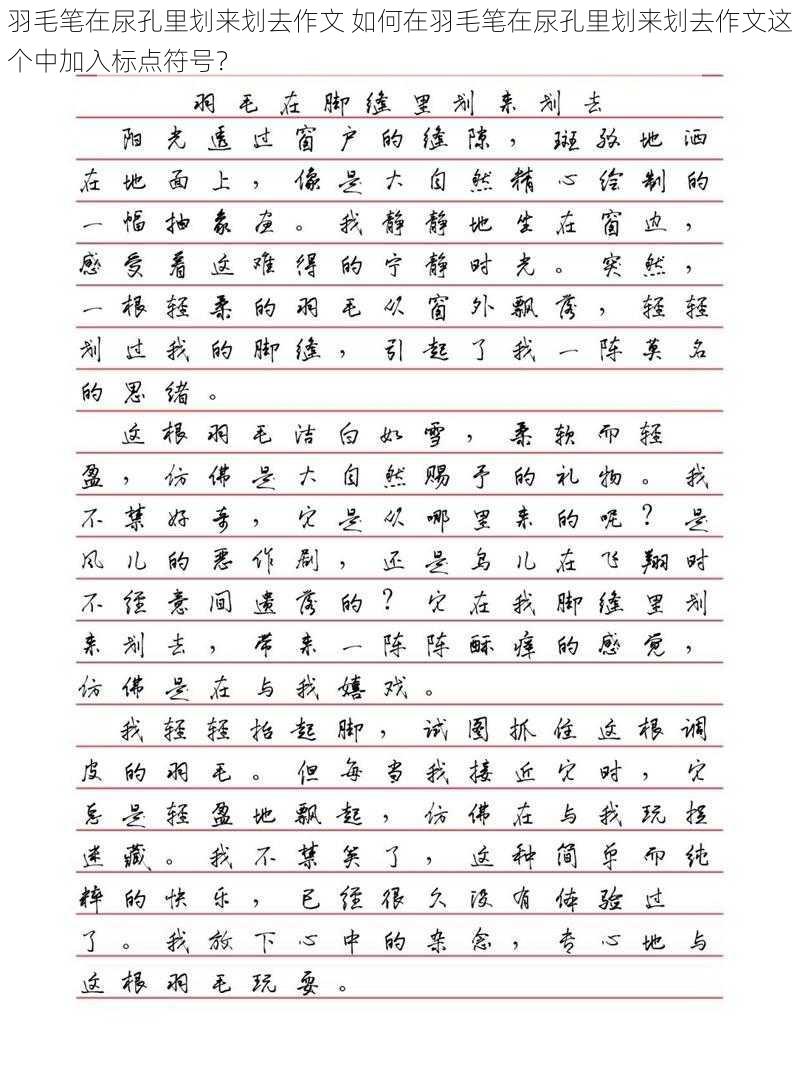 羽毛笔在尿孔里划来划去作文 如何在羽毛笔在尿孔里划来划去作文这
个中加入标点符号?
羽毛在脚缝里划来划去
阳光透过窗户的缝隙，斑驳地洒
在地面上，像是大自然精心绘制的
一幅抽象画。我静静地坐在窗边，
感受着这难得的宁静时光。突然，
一根轻柔的羽毛从窗外飘落，轻轻
划过我的脚缝，引起了我一阵莫名
的思绪。
这根羽毛洁白如雪，柔软而轻
盈，仿佛是大自然赐予的礼物。我
不禁好奇，它是从哪里来的呢？是
风儿的恶作剧，还是鸟儿在飞翔时
不经意间遗落的？它在我脚缝里划
来划去，带来一阵阵酥痒的感觉，
仿佛是在与我嬉戏。
我轻轻抬起脚，试图抓住这根调
皮的羽毛。但每当我接近它时，它
总是轻盈地飘起，仿佛在与我玩捉
迷藏。我不禁笑了，这种简单而纯
粹的快乐，已经很久没有体验过
了。我放下心中的杂念，专心地与
这根羽毛玩耍。